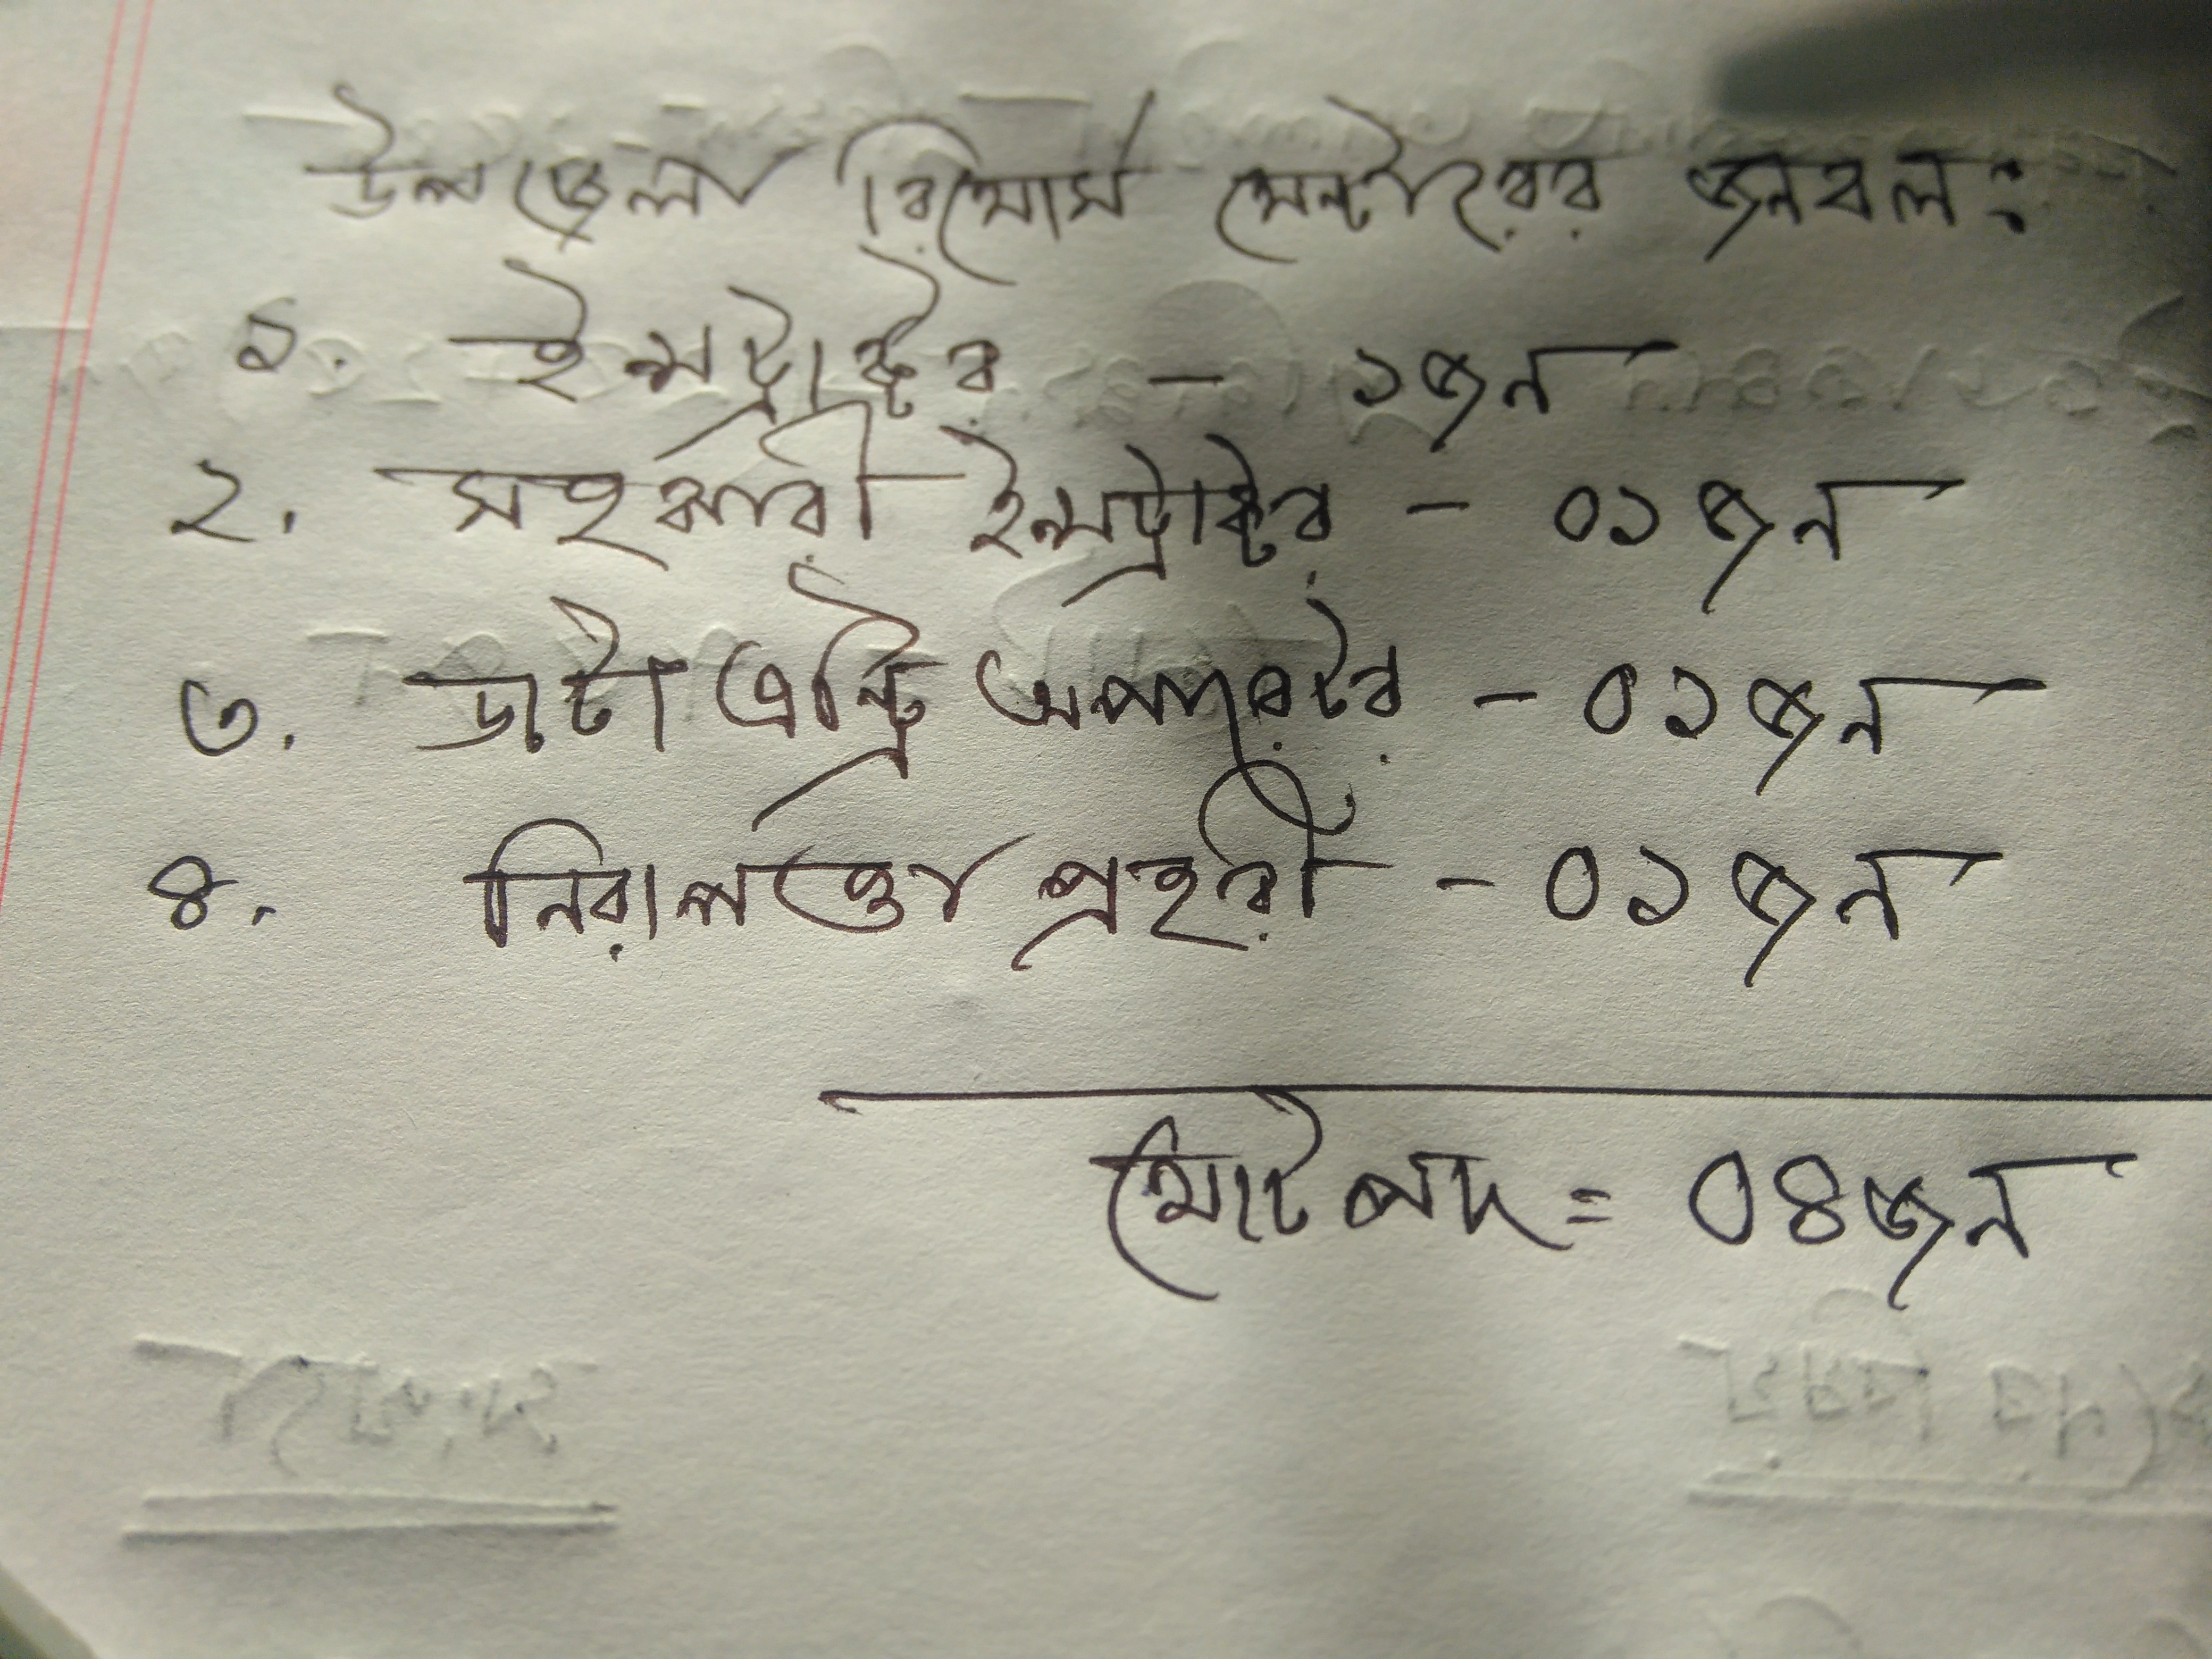 উপজেলা রিসোর্স সেন্টারের জনবল:
১. ইন্সট্রাক্টর - ১জন
২. সহকারী ইন্সট্রাক্টর - ০১জন
৩. ডাটা এন্ট্রি অপারেটর - ০১জন
৪. নিরাপত্তা প্রহরী - ০১জন
মোট পদ = ০৪জন